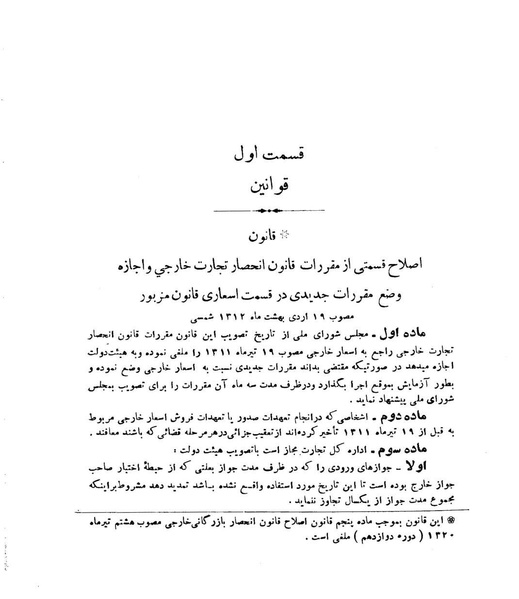 قسمت اول
قوانین
* قانون
اصلاح قسمتی از مقررات قانون انحصار تجارت خارجي واجازه
وضع مقررات جدیدی در قسمت اسعاری قانون مزبور
مصوب ۱۹ اردی بهشت ماه ۱۳۱۲ شمسی
ماده اول ـ مجلس شورای ملی از تاریخ تصویب این قانون مقررات قانون انحصار
تجارت خارجی راجع به اسعار خارجی مصوب ۱۹ تیرماه ۱۳۱۱ را ملغی نموده وبه هیئت‌دولت
اجازه میدهد در صورتیکه مقتضی بداند مقررات جدیدی نسبت به اسعار خارجی وضع نموده و
بطور آزمایش بموقع اجرا بگذارد ودرظرف مدت سه ماه آن مقررات را برای تصویب بمجلس
شورای ملی پیشنهاد نماید.
ماده دوم ـ اشخاصی که درانجام تعهدات صدور یا تعهدات فروش اسعار خارجی مربوط
به قبل از ۱۹ تیرماه ۱۳۱۱ تأخیر کرده‌اند ازتعقیب‌جزائی‌درهرمرحله قضائی‌که باشند معافند.
ماده سوم ـ اداره کل تجارت مجاز است باتصویب هیئت دولت :
اولا ـ جوازهای ورودی را که در ظرف مدت جواز بعلتی که از حیطهٔ اختیار صاحب
جواز خارج بوده است تا این تاریخ مورد استفاده واقع نشده باشد تمدید دهد مشروط‌براینکه
مجموع مدت جواز از یکسال تجاوز ننماید.
* این قانون بموجب ماده پنجم قانون اصلاح قانون انحصار بازرگانی‌خارجی مصوب هشتم تیرماه
۱۳۲۰ ( دوره دوازدهم ) ملغی است .